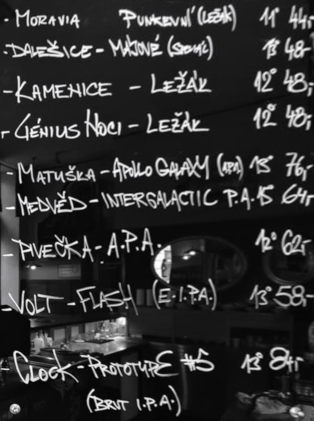 - MORAVIA PUNKEVNÍ (LEŽÁK) 11° 44,-
- DALEŠICE - MÁJOVÉ 13° 48,-
- KAMENICE - LEŽÁK 12° 48,-
- GÉNIUS NOCI - LEŽÁK 12° 48,-
- MATUŠKA - APOLLO GALAXY (APA) 13° 76,-
- MEDVĚD - INTERGALACTIC P.A. 15 64,-
- PIVEČKA. A.P.A. 12° 62,-
- VOLT - FLASH (E.I.P.A.) 13° 58,-
- CLOCK - PROTOTYPE #5 13° 84,-
(BRUT I.P.A.)